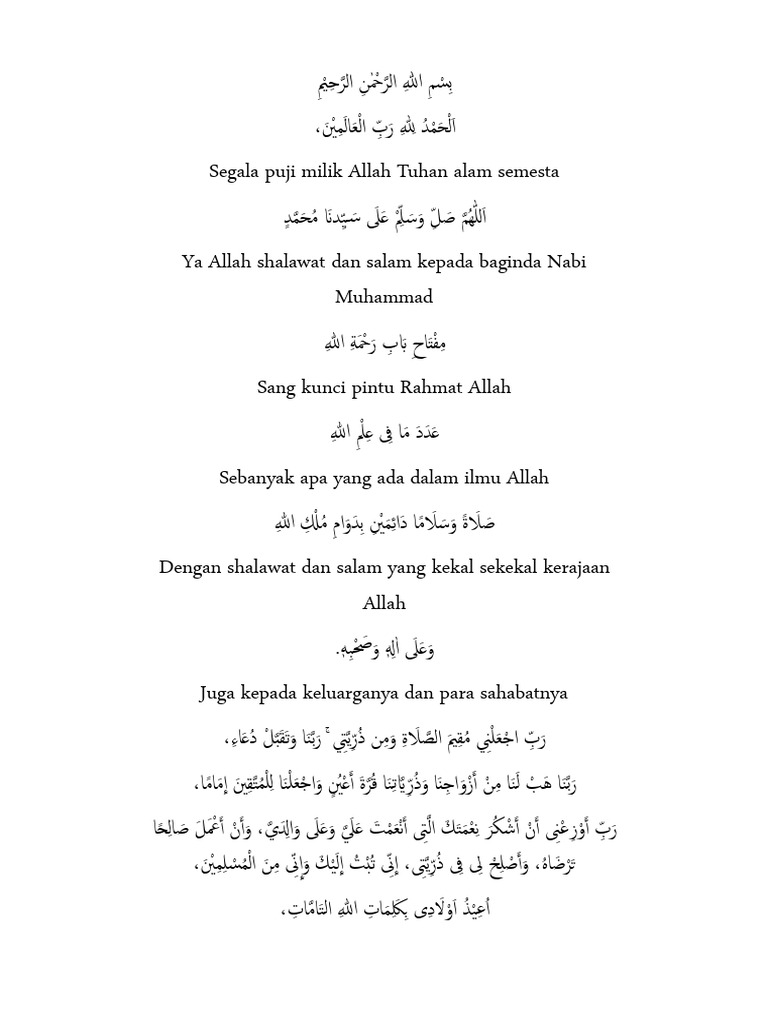 بِسْمِ اللهِ الرَّحْمٰنِ الرَّحِيْمِ
اَلْحَمْدُ لِلهِ رَبِّ الْعَالَمِيْنَ،
Segala puji milik Allah Tuhan alam semesta
اَللّٰهُمَّ صَلِّ وَسَلِّمْ عَلَى سَيِّدِنَا مُحَمَّدٍ
Ya Allah shalawat dan salam kepada baginda Nabi
Muhammad
مِفْتَاحِ بَابِ رَحْمَةِ اللهِ
Sang kunci pintu Rahmat Allah
عَدَدَ مَا فِى عِلْمِ اللهِ
Sebanyak apa yang ada dalam ilmu Allah
صَلَاةً وَسَلَامًا دَائِمَيْنِ بِدَوَامِ مُلْكِ اللهِ
Dengan shalawat dan salam yang kekal sekekal kerajaan
Allah
وَعَلَى اٰلِهٖ وَصَحْبِهٖ.
Juga kepada keluarganya dan para sahabatnya
رَبِّ اجْعَلْنِي مُقِيمَ الصَّلَاةِ وَمِن ذُرِّيَّتِي ۚ رَبَّنَا وَتَقَبَّلْ دُعَاءِ،
رَبَّنَا هَبْ لَنَا مِنْ أَزْوَاجِنَا وَذُرِّيَّاتِنَا قُرَّةَ أَعْيُنٍ وَاجْعَلْنَا لِلْمُتَّقِينَ إِمَامًا،
رَبِّ أَوْزِعْنِى أَنْ أَشْكُرَ نِعْمَتَكَ الَّتِى أَنْعَمْتَ عَلَيَّ وَعَلَى وَالِدَيَّ، وَأَنْ أَعْمَلَ صَالِحًا
تَرْضَاهُ، وَأَصْلِحْ لِى فِى ذُرِّيَّتِى، إِنِّى تُبْتُ إِلَيْكَ وَإِنِّى مِنَ الْمُسْلِمِيْنَ،
اُعِيْذُ اَوْلَادِى بِكَلِمَاتِ اللهِ التَامَّاتِ،